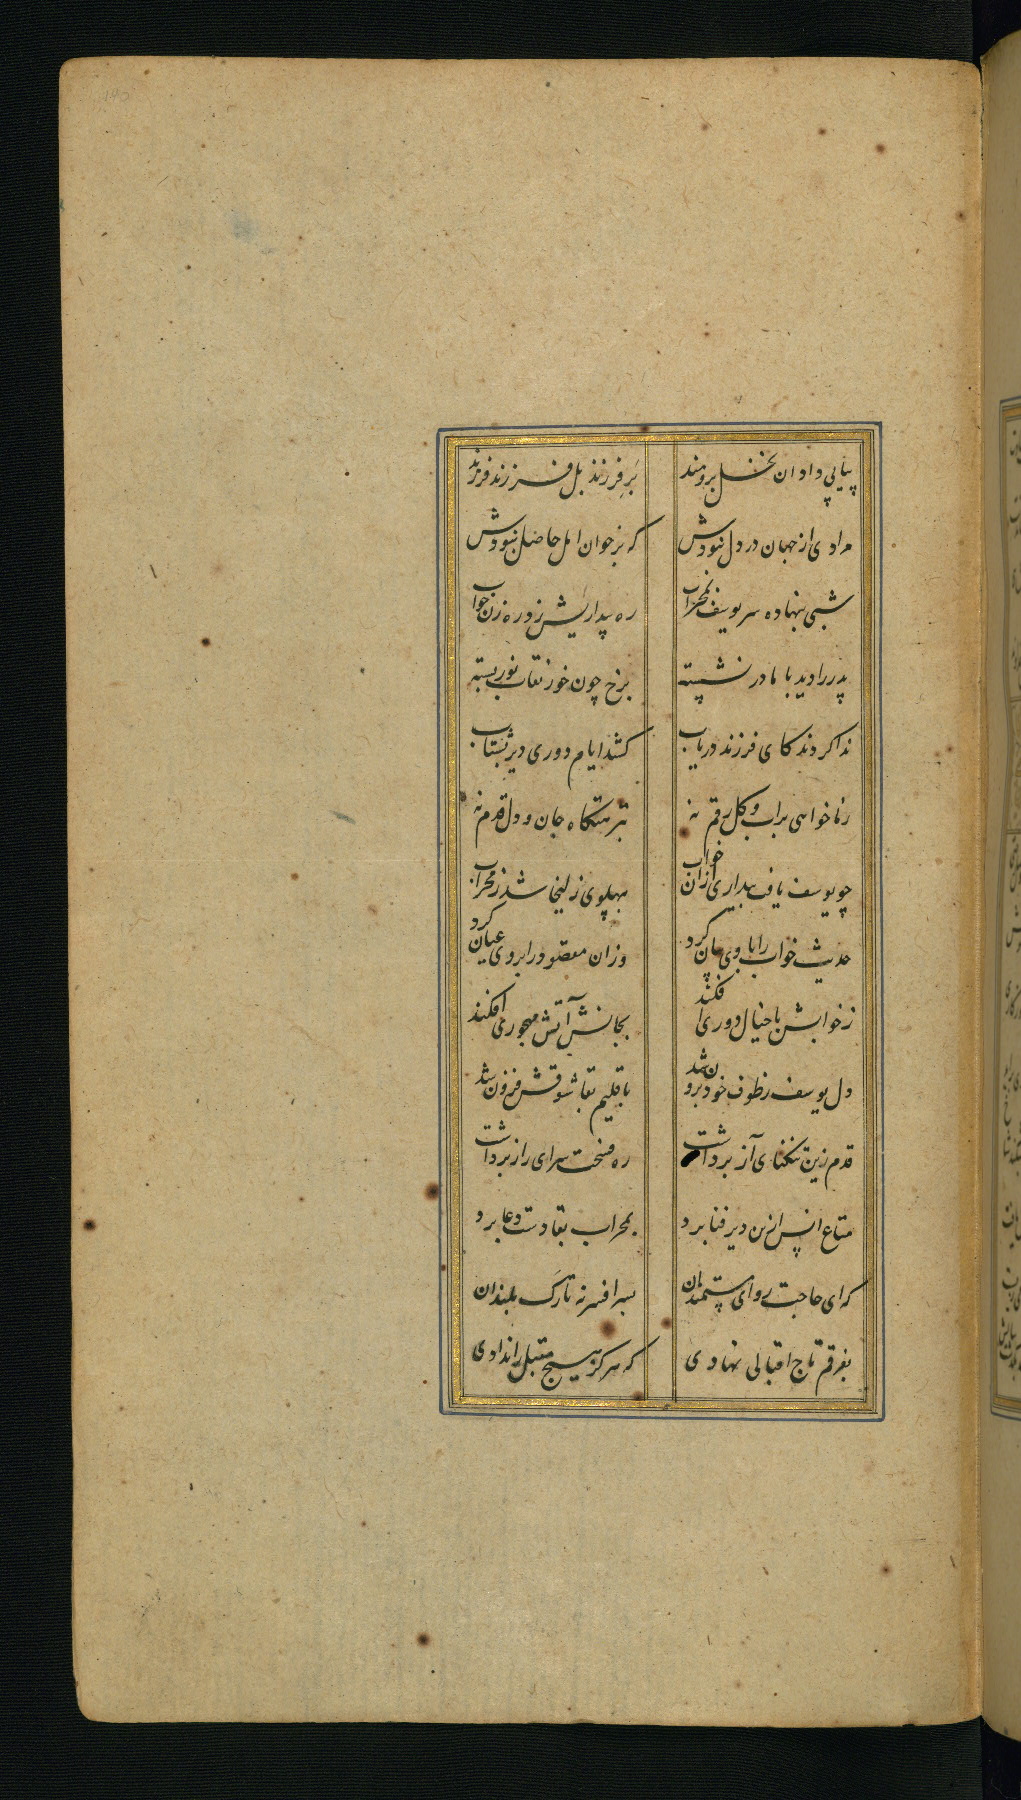 پیاپی داد آن نخل برومند
بر فرزند بل فرزند فرزند
مرادی از جهان در دل نبودش
که بر خوان امل حاصل نبودش
شبی بنهاده سر یوسف بمحراب
ره بیداریش زد رهزن خواب
پدر را دید با مادر نشسته
برخ چون خور نقاب نور بسته
ندا کردند کای فرزند دریاب
کشد ایام دوری دیر بشتاب
رها خواهی بر آب و گل رقم نه
بنزهتگاه جان و دل قدم نه
چو یوسف یافت بیداری ازان خواب
بپهلوی زلیخا شد ز محراب
حدیث خواب را با وی بیان کرد
وزان مقصود را بر وی عیان کرد
ز خوابش با خیال دوری افکند
بجانش آتش مهجوری افکند
دل یوسف ز طوف خود برون شد
باقلیم بقا شوقش فزون شد
قدم زین تنگنای آز برداشت
ره فسحت سرای راز برداشت
متاع انس ازین دیر فنا برد
بمحراب بقا دست دعا برد
که ای حاجت روای مستمندان
بسر افسر نه تارک بلندان
بفرقم تاج اقبالی نهادی
که هرگز هیچ مقبل را ندادی